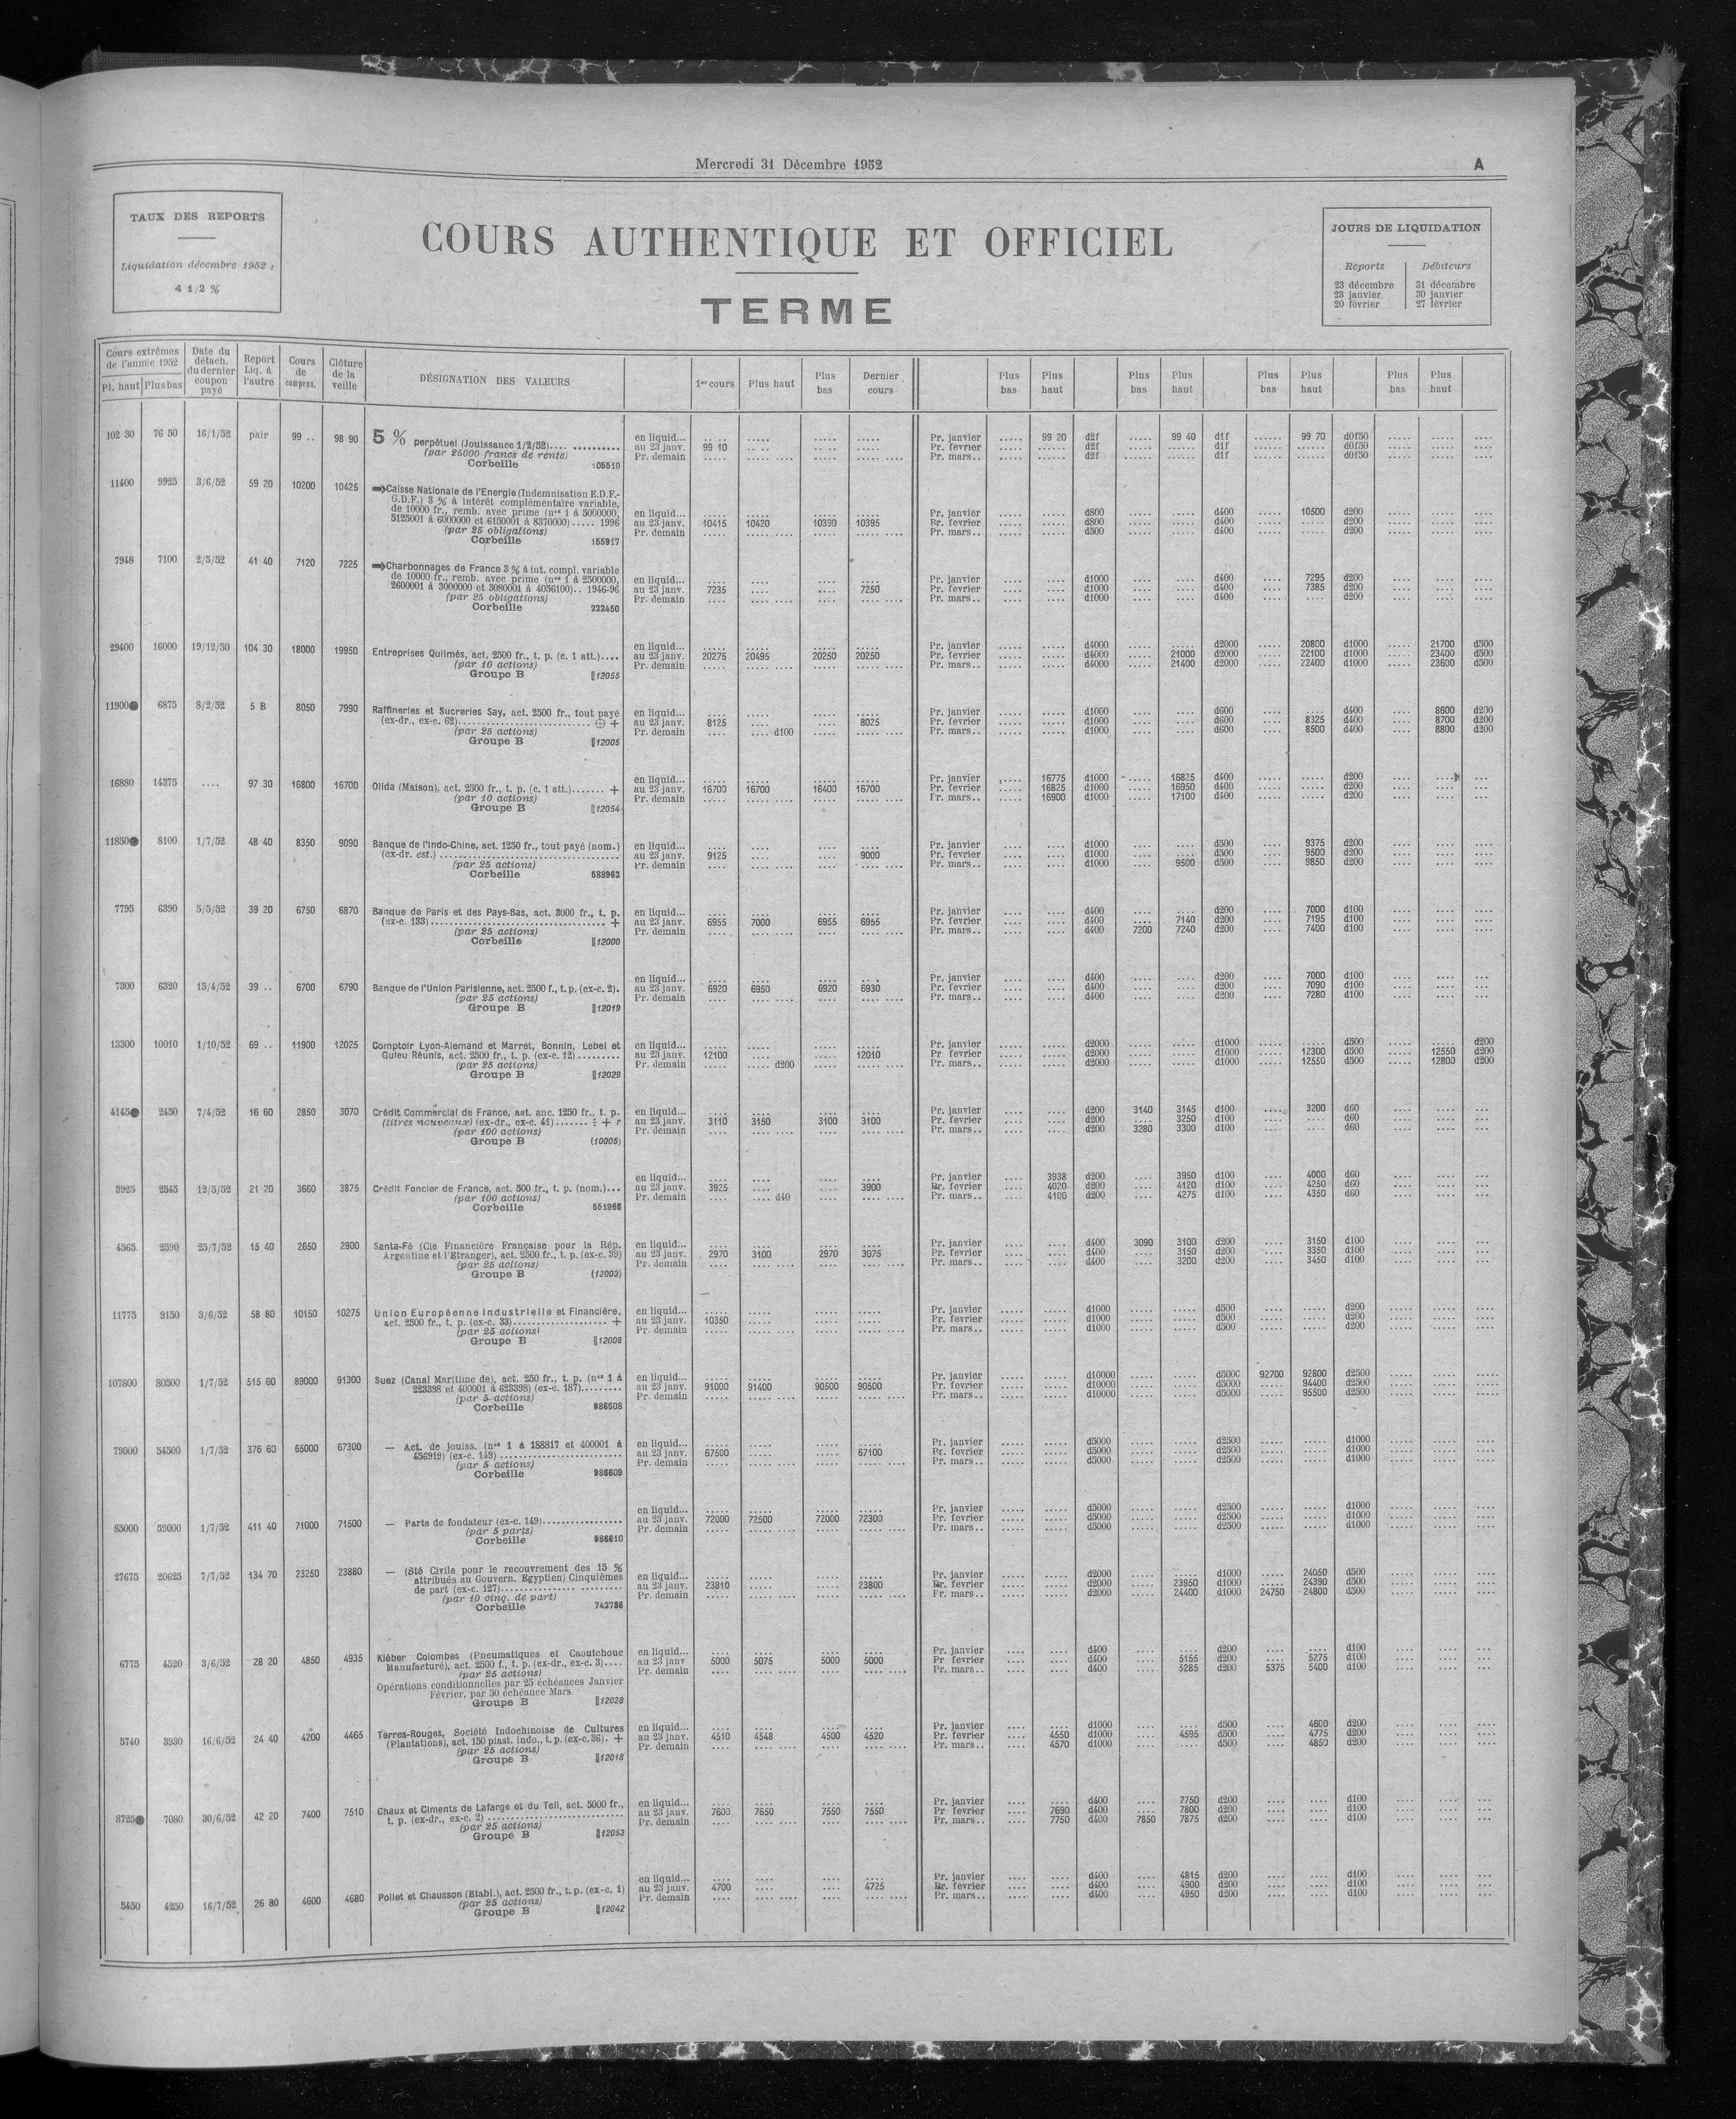 Mercredi 31 Décembre 1952
A
TAUX DES REPORTS
Liquidation décembre 1952 :
4 1/2 %
COURS AUTHENTIQUE ET OFFICIEL
TERME
JOURS DE LIQUIDATION
Reports Débiteurs
23 décembre 31 décembre
23 janvier 30 janvier
20 février 27 février
Cours extrêmes de l'année 1952 Pl. haut Plus bas
Date du détach. du dernier coupon payé
Report Liq. à l'autre
Cours de compens.
Clôture de la veille
DÉSIGNATION DES VALEURS
1er cours Plus haut Plus bas Dernier cours
Plus bas Plus haut Plus bas Plus haut Plus bas Plus haut Plus bas Plus haut
102 30 76 50 16/1/52 pair 99 .. 98 90 5 % perpétuel (Jouissance 1/2/52).... ..........
(par 25000 francs de rente)
Corbeille 105510
en liquid... Pr. janvier 99 20 d2f 99 40 d1f 99 70 d0f50
au 23 janv. 99 10 Pr. fevrier d2f d1f d0f50
Pr. demain Pr. mars.. d2f d1f d0f50
11400 9925 3/6/52 59 20 10200 10425 Caisse Nationale de l'Energie (Indemnisation E.D.F.-
G.D.F.) 3 % à intérêt complémentaire variable,
de 10000 fr., remb. avec prime (nos 1 à 5000000,
5125001 à 6000000 et 6150001 à 8370000)..... 1996
(par 25 obligations)
Corbeille 155917
en liquid... Pr. janvier d800 d400 10500 d200
au 23 janv. 10415 10420 10390 10395 Pr. fevrier d800 d400 d200
Pr. demain Pr. mars.. d500 d400 d200
7948 7100 2/5/52 41 40 7120 7225 Charbonnages de France 3 % à int. compl. variable
de 10000 fr., remb. avec prime (nos 1 à 2500000,
2600001 à 3000000 et 3080001 à 4056100).. 1946-96
(par 25 obligations)
Corbeille 222450
en liquid... Pr. janvier d1000 d400 7295 d200
au 23 janv. 7235 7250 Pr. fevrier d1000 d400 7385 d200
Pr. demain Pr. mars.. d1000 d400 d200
29400 16000 19/12/50 104 30 18000 19950 Entreprises Quilmès, act. 2500 fr., t. p. (c. 1 att.)....
(par 10 actions)
Groupe B 12055
en liquid... Pr. janvier d4000 d2000 20800 d1000 21700 d500
au 23 janv. 20275 20495 20250 20250 Pr. fevrier d4000 21000 d2000 22100 d1000 23400 d500
Pr. demain Pr. mars.. d4000 21400 d2000 22400 d1000 23600 d500
11900● 6875 8/2/52 5 B 8050 7990 Raffineries et Sucreries Say, act. 2500 fr., tout payé
(ex-dr., ex-c. 62).............................. ⊕ +
(par 25 actions)
Groupe B 12005
en liquid... Pr. janvier d1000 d600 d400 8600 d200
au 23 janv. 8125 8025 Pr. fevrier d1000 d600 8325 d400 8700 d200
Pr. demain d100 Pr. mars.. d1000 d600 8500 d400 8800 d200
16880 14375 .... 97 30 16800 16700 Olida (Maison), act. 2500 fr., t. p. (c. 1 att.)....... +
(par 10 actions)
Groupe B 12054
en liquid... Pr. janvier 16775 d1000 16825 d400 d200
au 23 janv. 16700 16700 16400 16700 Pr. fevrier 16825 d1000 16950 d400 d200
Pr. demain Pr. mars.. 16900 d1000 17100 d400 d200
11850● 8100 1/7/52 48 40 8350 9090 Banque de l'Indo-Chine, act. 1250 fr., tout payé (nom.)
(ex-dr. est.) ....................................
(par 25 actions)
Corbeille 588962
en liquid... Pr. janvier d1000 d500 9375 d200
au 23 janv. 9125 9000 Pr. fevrier d1000 d500 9500 d200
Pr. demain Pr. mars.. d1000 9500 d500 9850 d200
7795 6390 5/5/52 39 20 6750 6870 Banque de Paris et des Pays-Bas, act. 3000 fr., t. p.
(ex-c. 133)................................... +
(par 25 actions)
Corbeille 12000
en liquid... Pr. janvier d400 d200 7000 d100
au 23 janv. 6955 7000 6955 6955 Pr. fevrier d400 7140 d200 7195 d100
Pr. demain Pr. mars.. d400 7200 7240 d200 7400 d100
7300 6320 15/4/52 39 .. 6700 6790 Banque de l'Union Parisienne, act. 2500 f., t. p. (ex-c. 2).
(par 25 actions)
Groupe B 12019
en liquid... Pr. janvier d400 d200 7000 d100
au 23 janv. 6920 6950 6920 6930 Pr. fevrier d400 d200 7090 d100
Pr. demain Pr. mars.. d400 d200 7280 d100
13300 10010 1/10/52 69 .. 11900 12025 Comptoir Lyon-Alemand et Marret, Bonnin, Lebel et
Guieu Réunis, act. 2500 fr., t. p. (ex-c. 12).........
(par 25 actions)
Groupe B 12029
en liquid... Pr. janvier d2000 d1000 d500 d200
au 23 janv. 12100 12010 Pr fevrier d2000 d1000 12300 d500 12550 d200
Pr. demain d200 Pr. mars.. d2000 d1000 12550 d500 12800 d200
4145● 2450 7/4/52 16 60 2850 3070 Crédit Commercial de France, act. anc. 1250 fr., t. p.
(titres nouveaux) (ex-dr., ex-c. 41)....... ÷ + r
(par 100 actions)
Groupe B (10005)
en liquid... Pr. janvier d200 3140 3145 d100 3200 d60
au 23 janv. 3110 3150 3100 3100 Pr. fevrier d200 3250 d100 d60
Pr. demain Pr. mars.. d200 3280 3300 d100 d60
3925 2545 12/5/52 21 20 3660 3875 Crédit Foncier de France, act. 500 fr., t. p. (nom.)...
(par 100 actions)
Corbeille 551966
en liquid... Pr. janvier 3938 d200 3950 d100 4000 d60
au 23 janv. 3925 3900 Pr. fevrier 4020 d200 4120 d100 4250 d60
Pr. demain d40 Pr. mars.. 4100 d200 4275 d100 4350 d60
4565 2590 25/7/52 15 40 2650 2900 Santa-Fé (Cie Financière Française pour la Rép.
Argentine et l'Etranger), act. 2500 fr., t. p. (ex-c. 39)
(par 25 actions)
Groupe B (12003)
en liquid... Pr. janvier d400 3090 3100 d200 3150 d100
au 23 janv. 2970 3100 2970 3075 Pr. fevrier d400 3150 d200 3350 d100
Pr. demain Pr. mars.. d400 3200 d200 3450 d100
11775 9150 3/6/52 58 80 10150 10275 Union Européenne Industrielle et Financière,
act. 2500 fr., t. p. (ex-c. 33)................... +
(par 25 actions)
Groupe B 12008
en liquid... Pr. janvier d1000 d500 d200
au 23 janv. 10350 Pr. fevrier d1000 d500 d200
Pr. demain Pr. mars.. d1000 d500 d200
107800 80500 1/7/52 515 60 89000 91300 Suez (Canal Maritime de), act. 250 fr., t. p. (nos 1 à
223398 et 400001 à 623398) (ex-c. 187)........
(par 5 actions)
Corbeille 986608
en liquid... Pr. janvier d10000 d5000 92700 92800 d2500
au 23 janv. 91000 91400 90500 90500 Pr. fevrier d10000 d5000 94400 d2500
Pr. demain Pr. mars.. d10000 d5000 95500 d2500
79000 54500 1/7/52 376 60 65000 67300 — Act. de jouiss. (nos 1 à 188817 et 400001 à
456919) (ex-c. 149) .........................
(par 5 actions)
Corbeille 986609
en liquid... Pr. janvier d5000 d2500 d1000
au 23 janv. 67500 67100 Pr. fevrier d5000 d2500 d1000
Pr. demain Pr. mars.. d5000 d2500 d1000
85000 59000 1/7/52 411 40 71000 71500 — Parts de fondateur (ex-c. 149)................
(par 5 parts)
Corbeille 986610
en liquid... Pr. janvier d5000 d2500 d1000
au 23 janv. 72000 72500 72000 72300 Pr. fevrier d5000 d2500 d1000
Pr. demain Pr. mars.. d5000 d2500 d1000
27675 20625 7/7/52 134 70 23250 23880 — (Sté Civile pour le recouvrement des 15 %
attribués au Gouvern. Egyptien) Cinquièmes
de part (ex-c. 127)............... .........
(par 10 cinq. de part)
Corbeille 742786
en liquid... Pr. janvier d2000 d1000 24050 d500
au 23 janv. 23810 23800 Pr. fevrier d2000 23950 d1000 24390 d500
Pr. demain Pr. mars.. d2000 24400 d1000 24750 24800 d500
6775 4520 3/6/52 28 20 4850 4935 Kléber Colombes (Pneumatiques et Caoutchouc
Manufacturé), act. 2500 f., t. p. (ex-dr., ex-c. 3)....
(par 25 actions)
Opérations conditionnelles par 25 échéances Janvier
Février, par 50 échéance Mars
Groupe B 12028
en liquid... Pr. janvier d400 d200 d100
au 23 janv 5000 5075 5000 5000 Pr fevrier d400 5155 d200 5275 d100
Pr. demain Pr. mars.. d400 5285 d200 5375 5400 d100
5740 3930 16/6/52 24 40 4200 4465 Terres-Rouges, Société Indochinoise de Cultures
(Plantations), act. 150 piast. indo., t. p. (ex-c. 36). +
(par 25 actions)
Groupe B 12018
en liquid... Pr. janvier d1000 d500 4600 d200
au 23 janv. 4510 4548 4500 4520 Pr. fevrier 4550 d1000 4595 d500 4775 d200
Pr. demain Pr. mars.. 4570 d1000 d500 4850 d200
8725● 7080 30/6/52 42 20 7400 7510 Chaux et Ciments de Lafarge et du Teil, act. 5000 fr.,
t. p. (ex-dr., ex-c. 2) ............................
(par 25 actions)
Groupe B 12053
en liquid... Pr. janvier d400 7750 d200 d100
au 23 janv. 7600 7650 7550 7550 Pr fevrier 7690 d400 7800 d200 d100
Pr. demain Pr. mars.. 7750 d400 7850 7875 d200 d100
5450 4250 16/7/52 26 80 4600 4680 Poliet et Chausson (Etabl.), act. 2500 fr., t. p. (ex-c. 1)
(par 25 actions)
Groupe B 12042
en liquid... Pr. janvier d400 4815 d200 d100
au 23 janv. 4700 4725 Pr. fevrier d400 4900 d200 d100
Pr. demain Pr. mars.. d400 4950 d200 d100